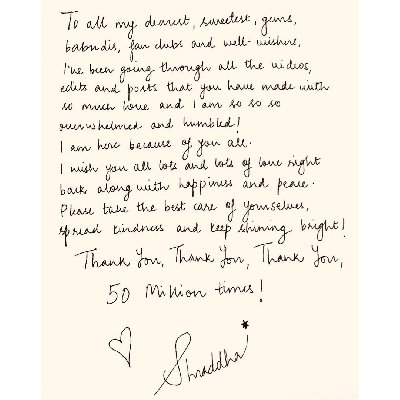 To all my dearest, sweetest, gems,
babudis, fan clubs and well-wishers,
I've been going through all the videos,
edits and posts that you have made with
so much love and I am so so so
overwhelmed and humbled!
I am here because of you all.
I wish you all lots and lots of love right
back along with happiness and peace.
Please take the best care of yourselves,
spread kindness and keep shining bright!
Thank You, Thank You, Thank You,
50 Million times!
Shraddha